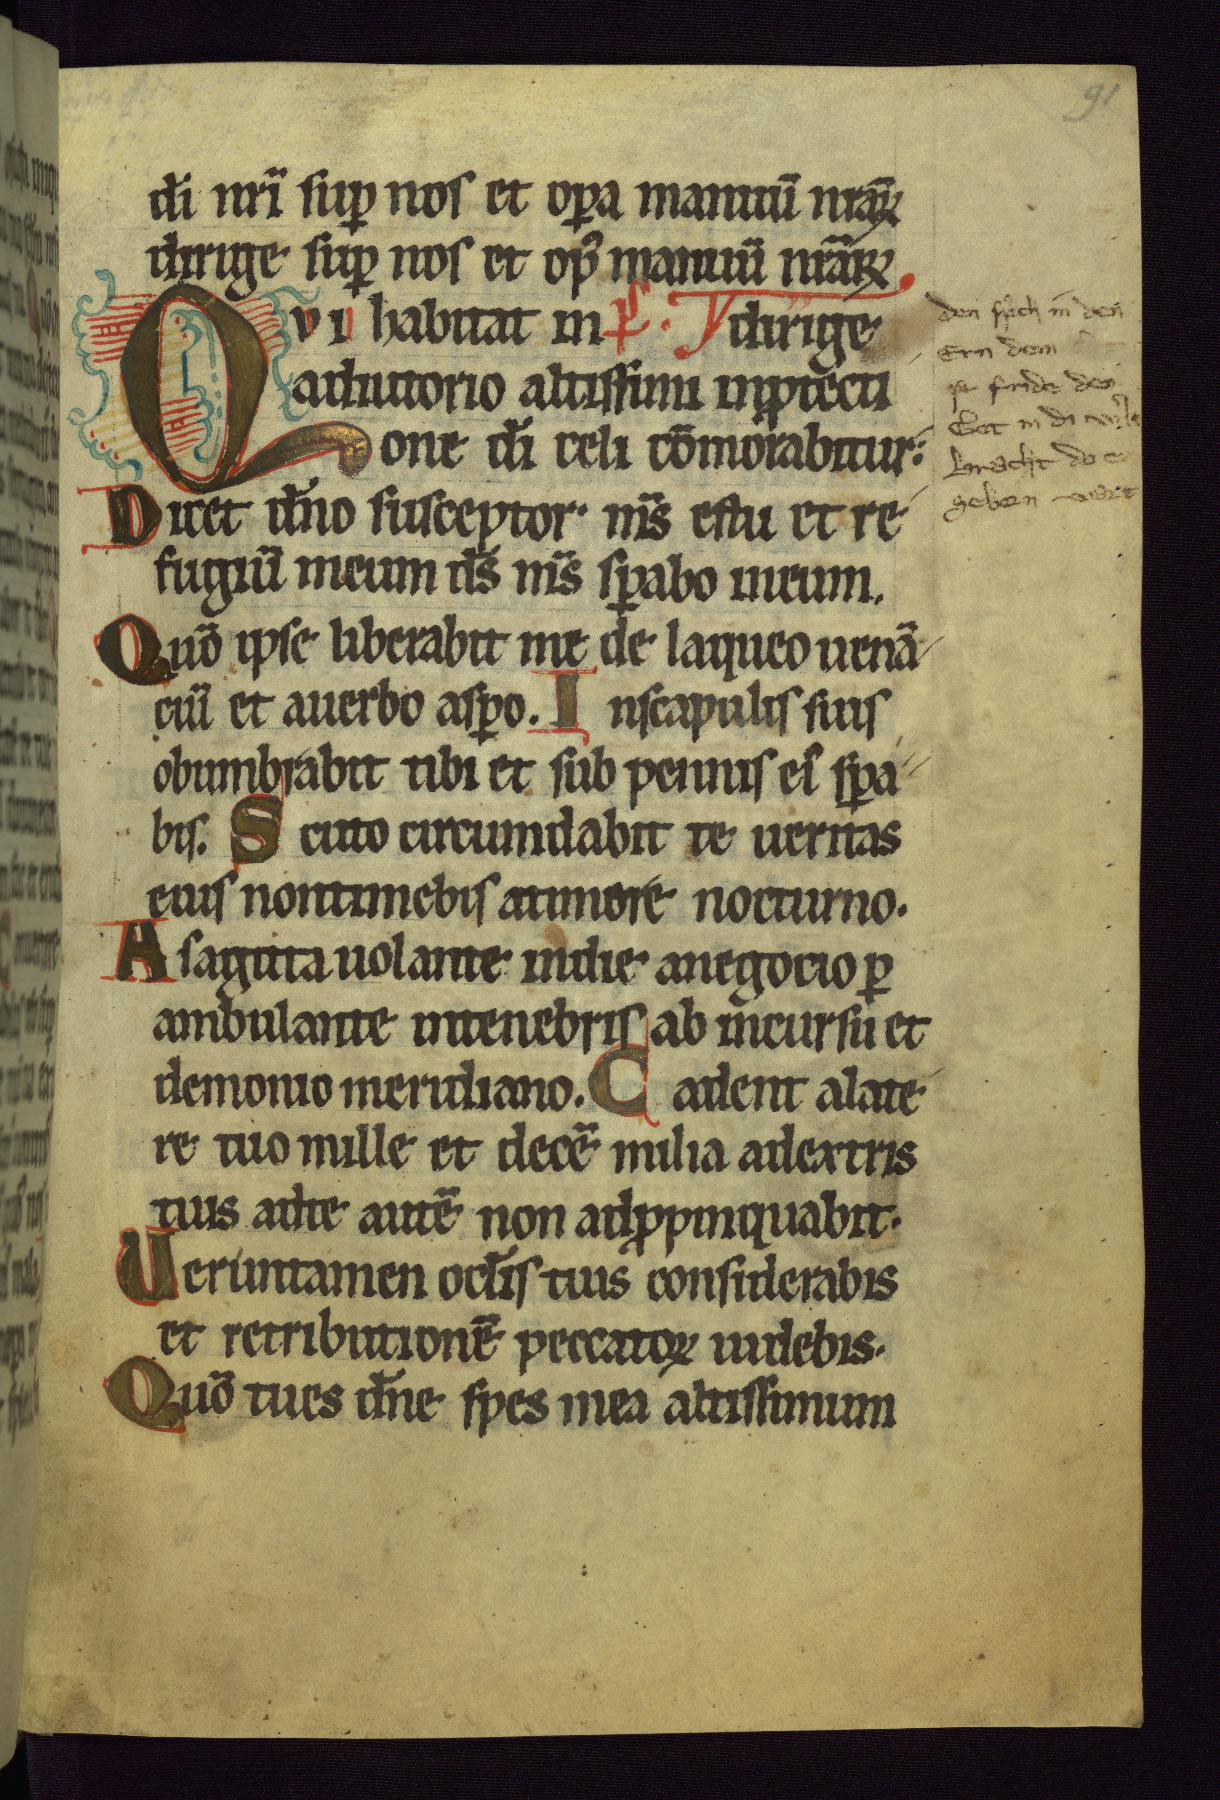 91
dī nrī sup nos et opa manuū nrāꝝ
dirige sup nos et op̄ manuū nrāꝝ
QVI habitat in p̄s. dirige
adiutorio altissimi inptecti
one dī celi cōmorabitur:
Dicet dn̄o susceptor ms̄ es tu et re
fugiū meum ds̄ ms̄ spabo in eum.
Quō ipse liberabit me de laqueo uenā
ciū et auerbo aspo. Inscapulis suis
obumbrabit tibi et sub pennis eī spa
bis. Scuto circumdabit te ueritas
eius nontimebis atimore nocturno.
A sagitta uolante indie anegocio p
ambulante intenebris ab incursu et
demonio meridiano. Cadent alate
re tuo mille et decē milia adextris
tuis adte autē non adppinquabit.
Ueruntamen oclīs tuis considerabis
et retributionē peccatoꝝ uidebis.
Quō tu es dn̄e spes mea altissimum
den sich in den
Ern dem
Got in di
bracht do
gebern